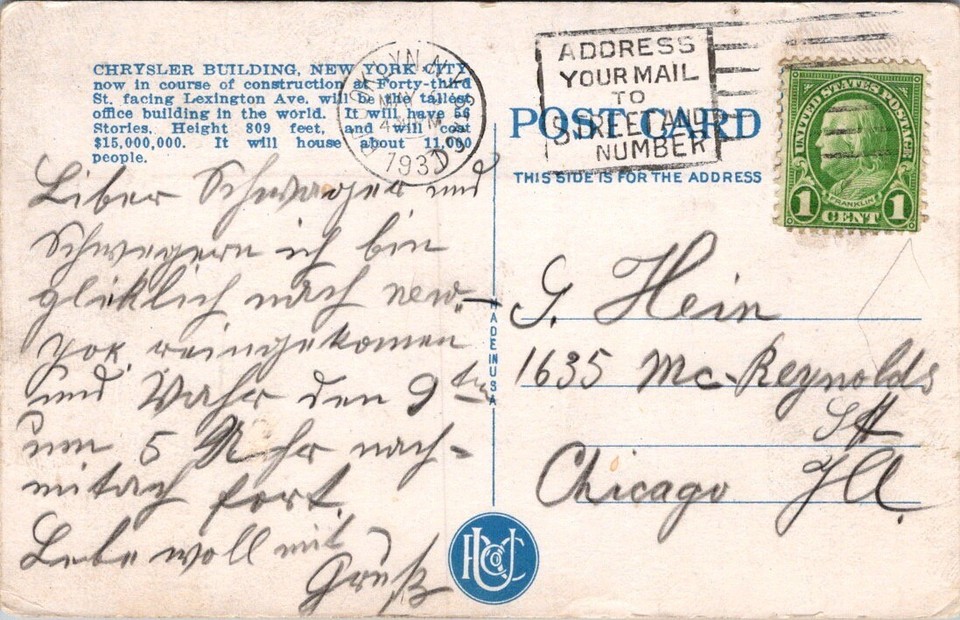 CHRYSLER BUILDING, NEW YORK CITY
now in course of construction at Forty-third
St. facing Lexington Ave. will be the tallest
office building in the world. It will have 56
Stories. Height 809 feet, and will cost
$15,000,000. It will house about 11,000
people.
BROOKLYN, N.Y.
MAY
PM
193
ADDRESS
YOUR MAIL
TO
STREET AND
NUMBER
POST CARD
THIS SIDE IS FOR THE ADDRESS
UNITED STATES POSTAGE
FRANKLIN
1 CENT 1
Liber Schwager und
Schwegern ich bin
gliklich nach new-
york reingekomen
und Wahr den 9ten
um 5 Uhr nach-
mitach fort.
Lebe woll mit
Gruß
MADE IN USA
G. Hein
1635 Mc-Reynolds
St
Chicago Ill.